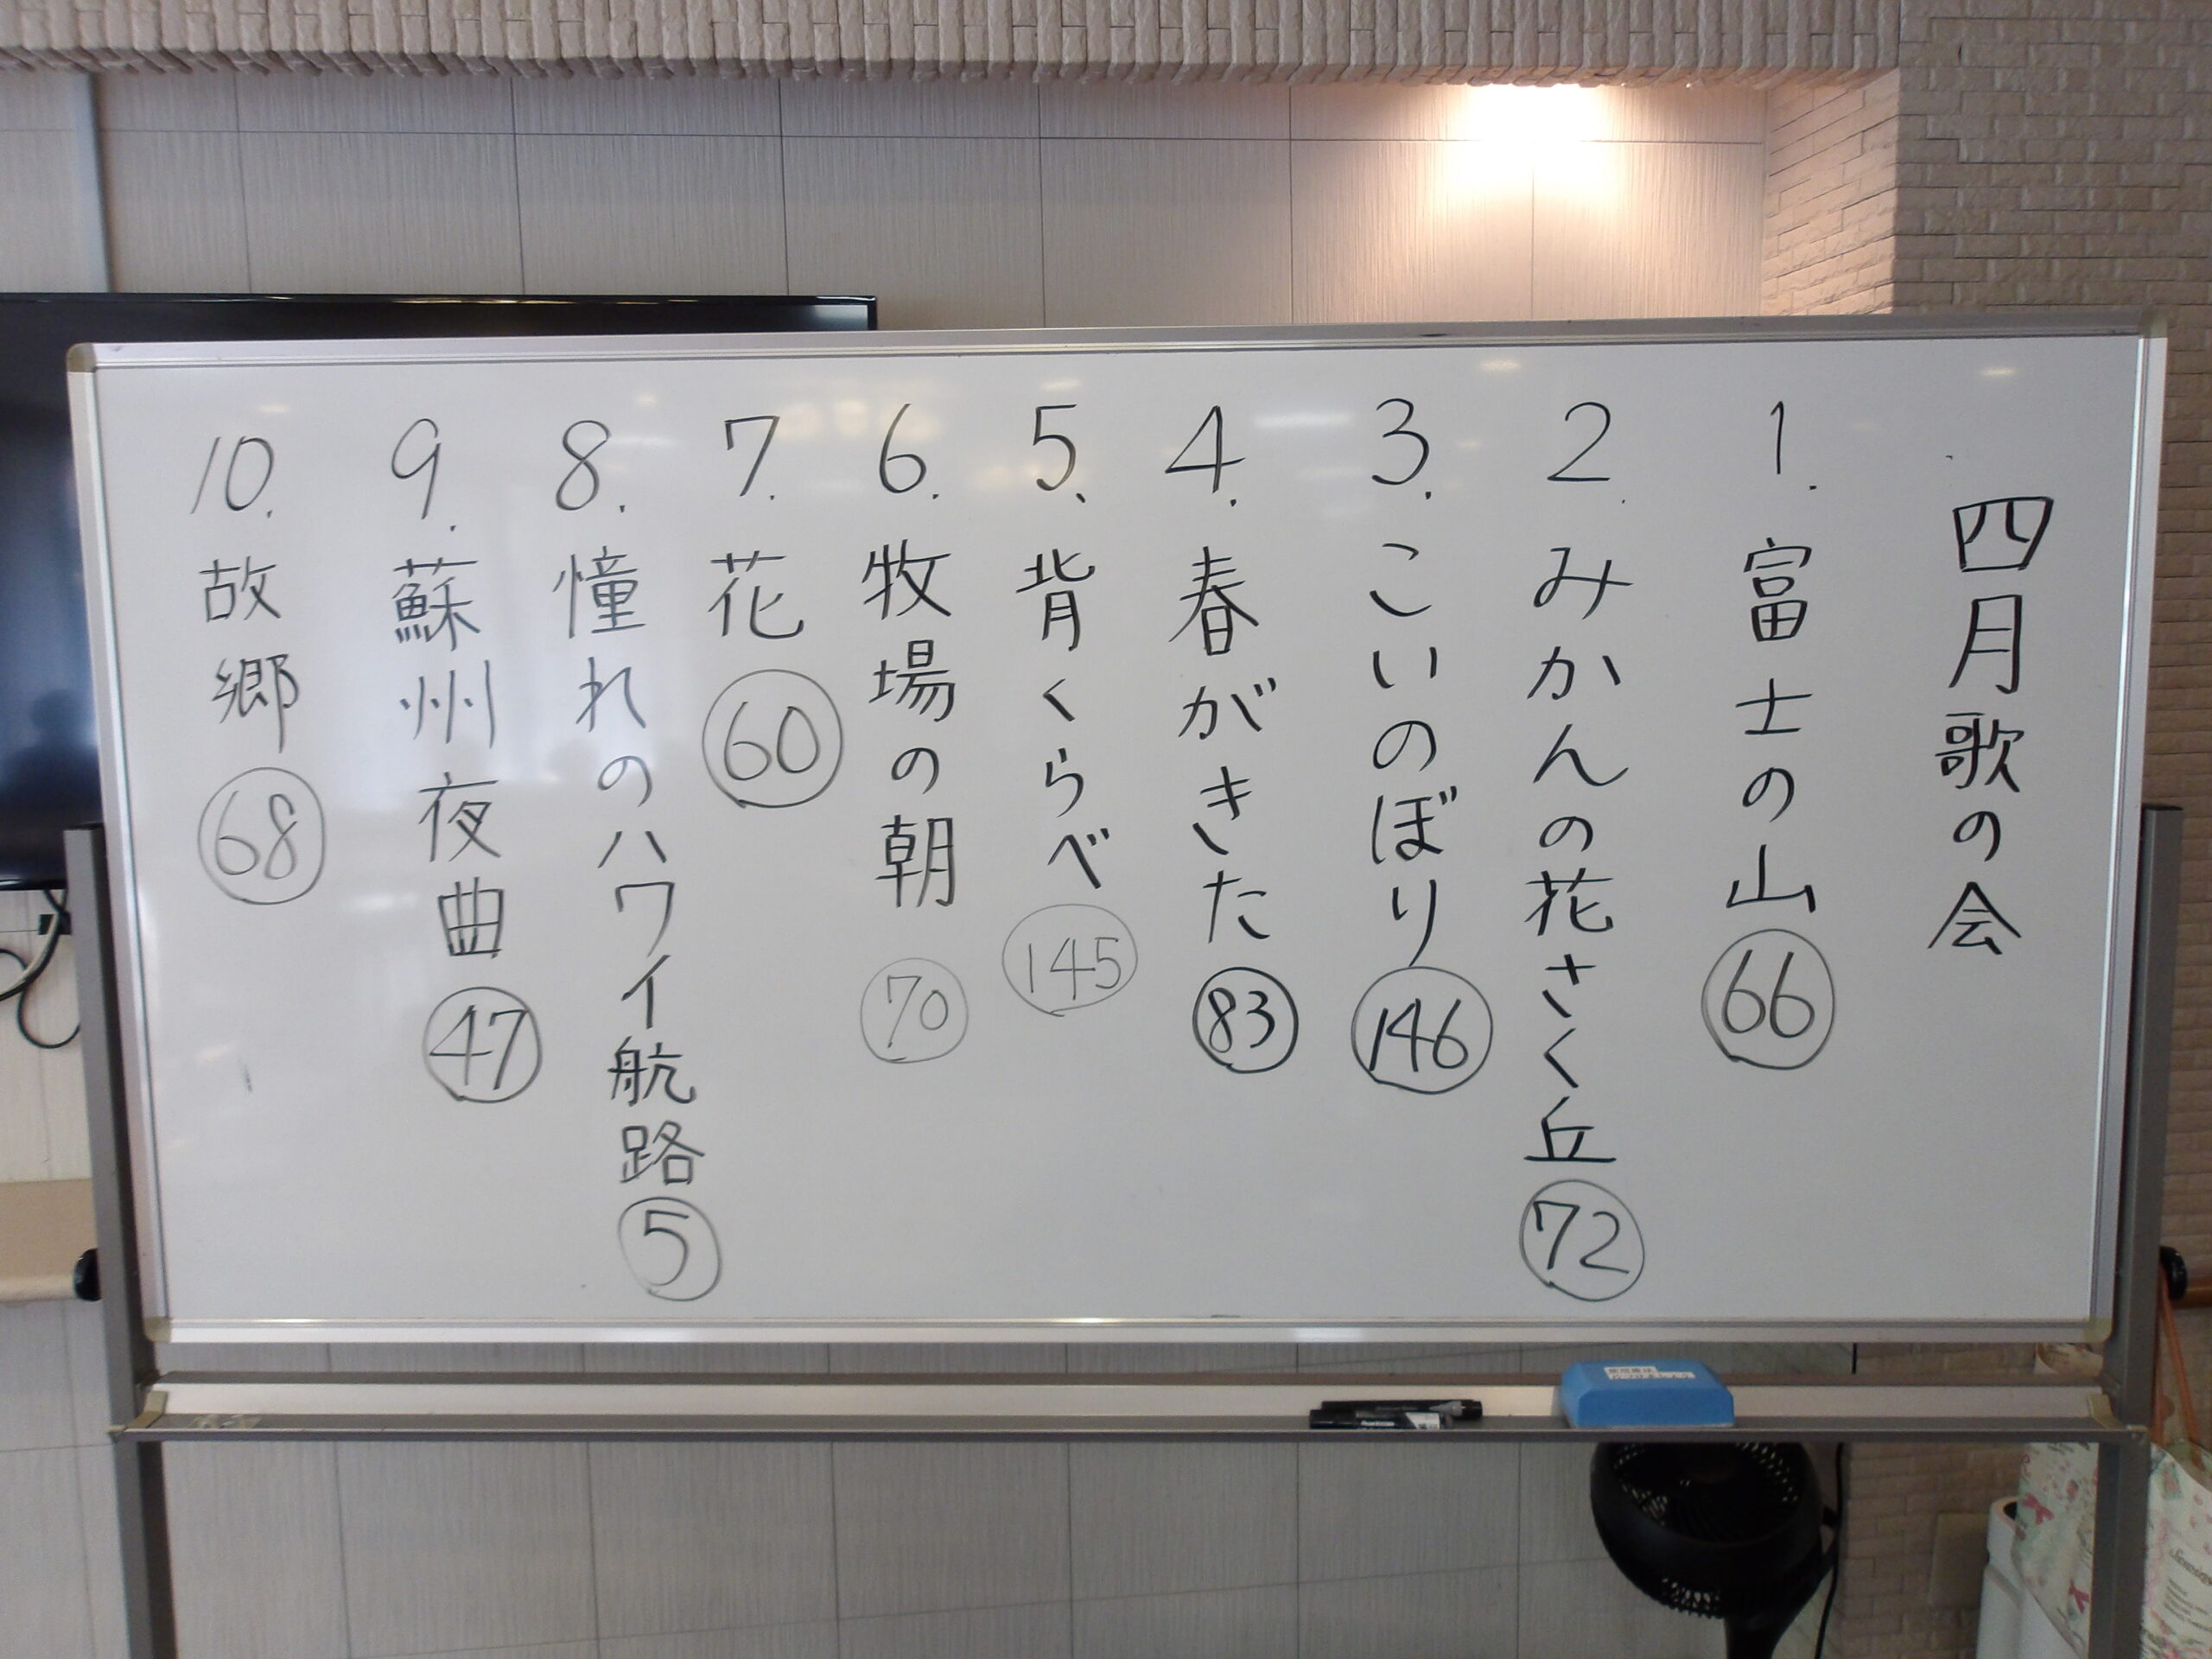 四月歌の会
1. 富士の山 66
2. みかんの花さく丘 72
3. こいのぼり 146
4. 春がきた 83
5. 背くらべ 145
6. 牧場の朝 70
7. 花 60
8. 憧れのハワイ航路 5
9. 蘇州夜曲 47
10. 故郷 68